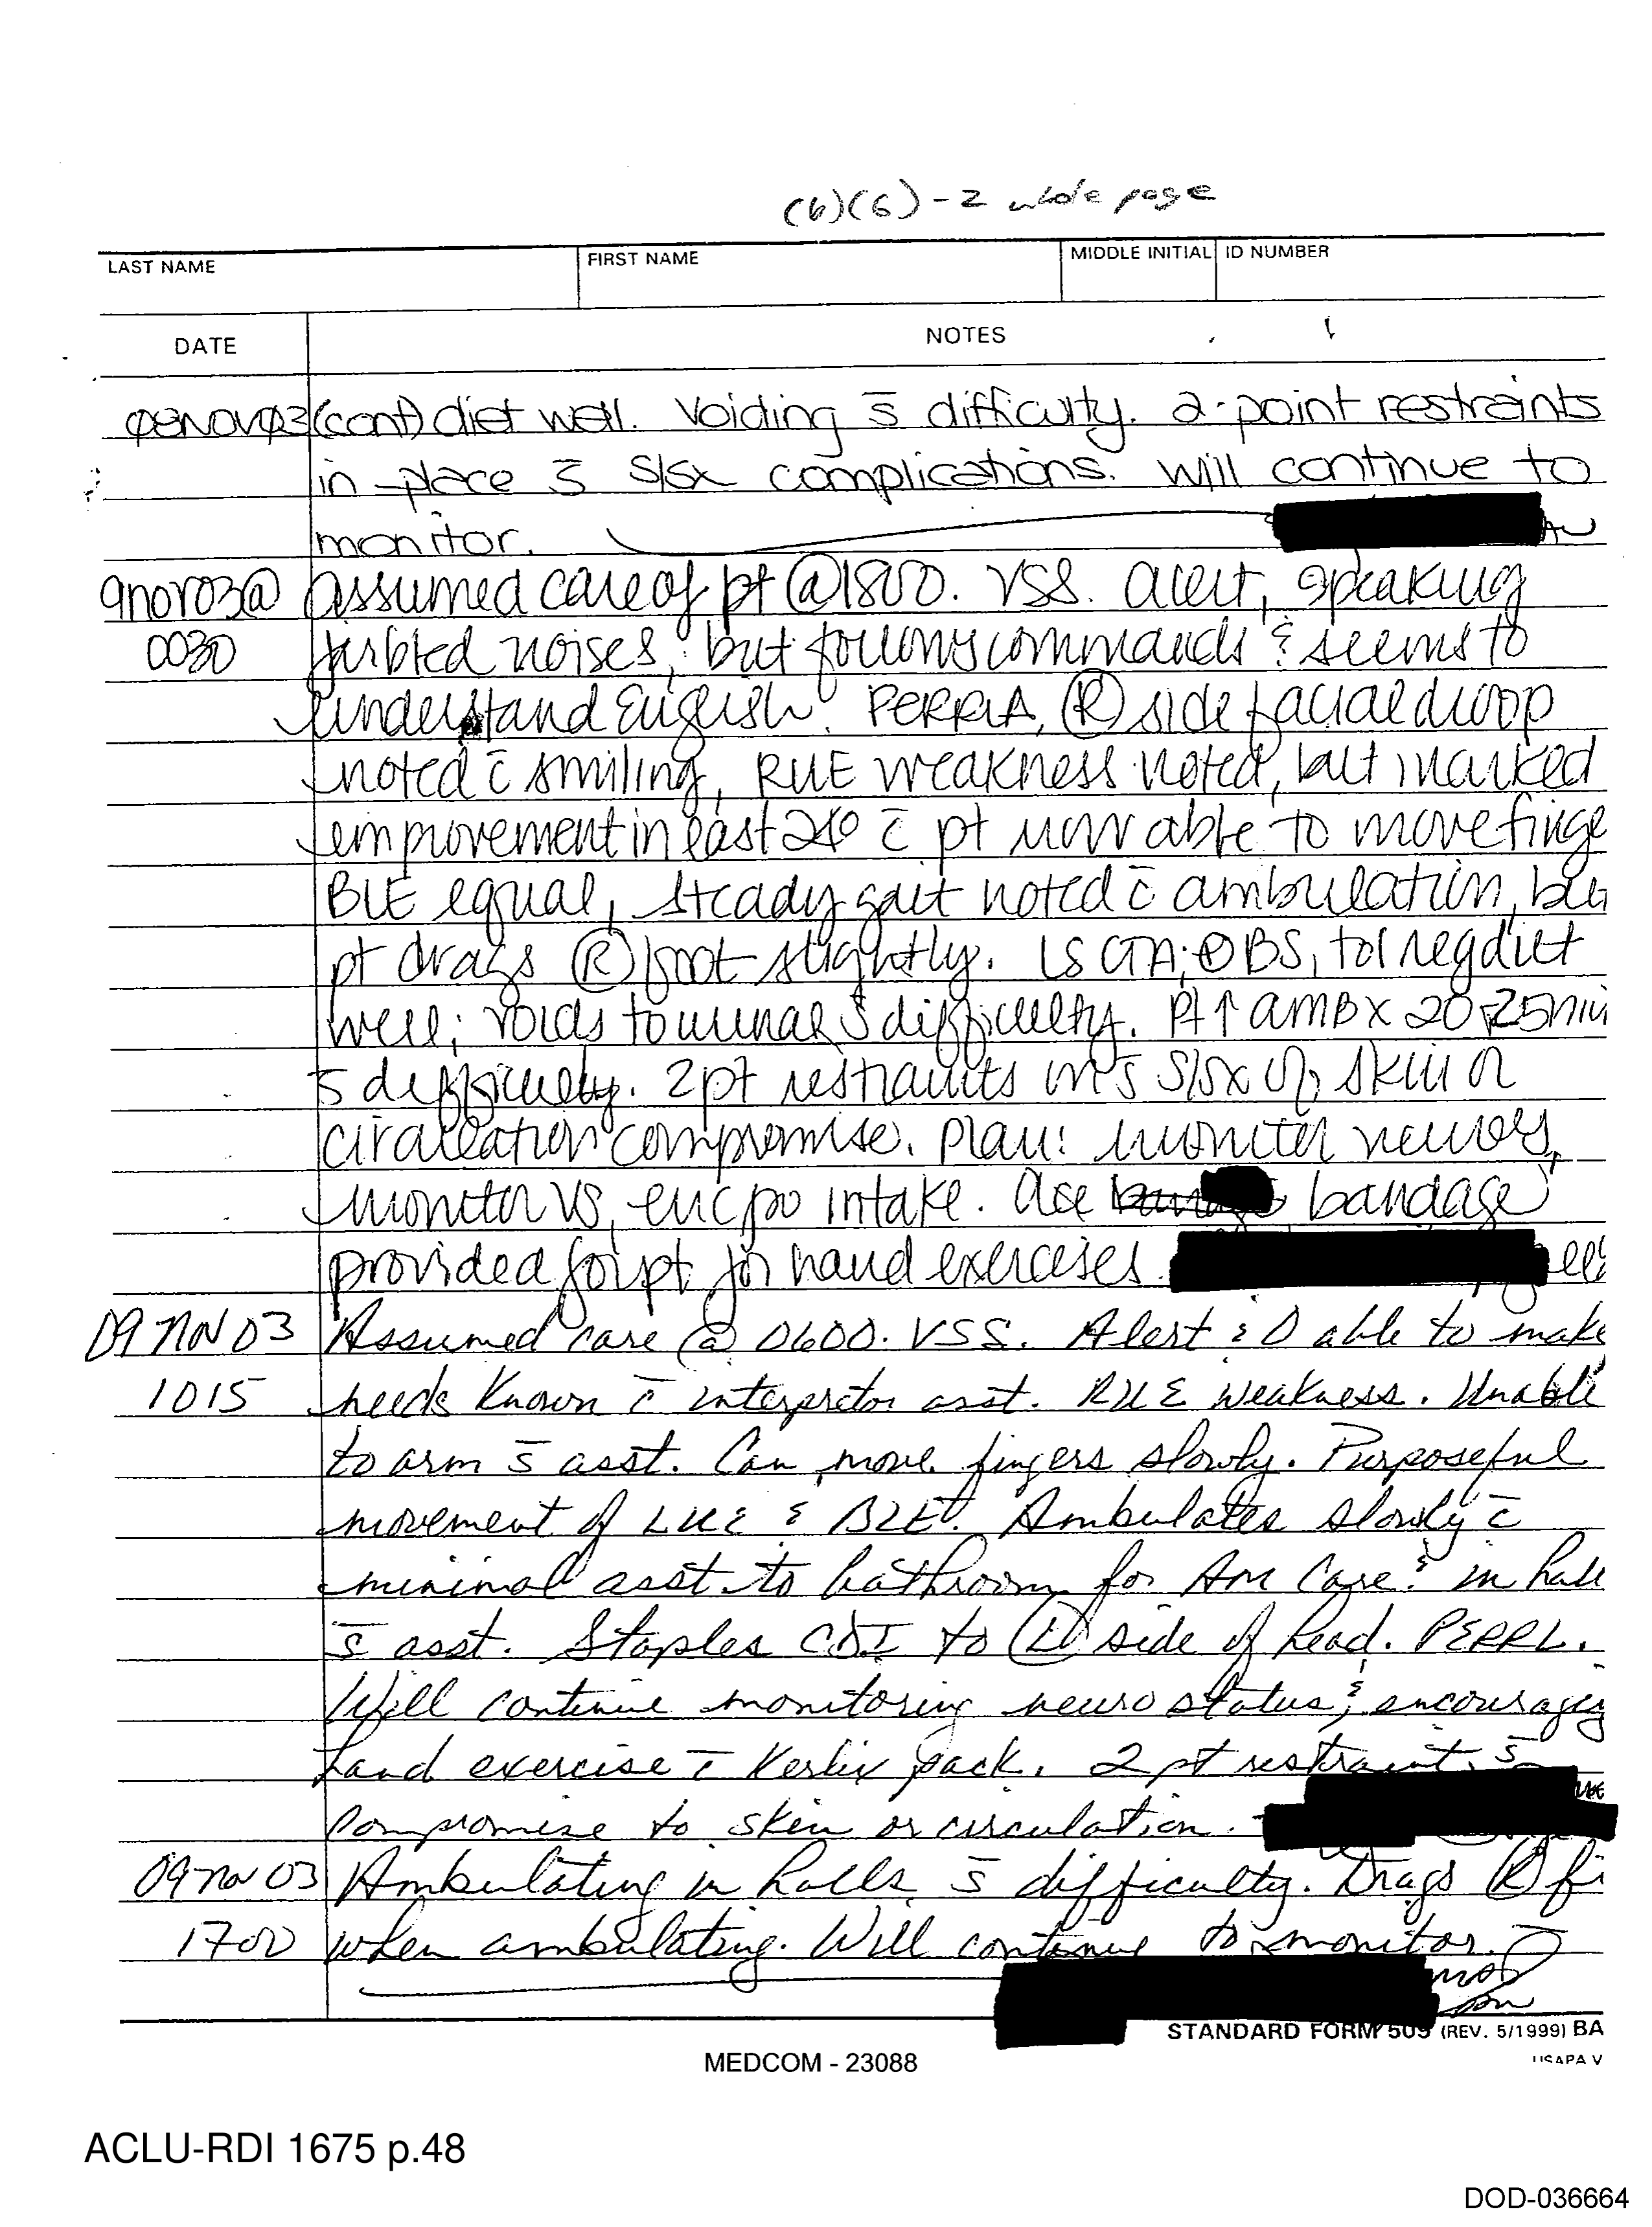 (b)(6)-2 whole page
LAST NAME FIRST NAME MIDDLE INITIAL ID NUMBER
DATE NOTES
08NOV03 (cont) diet well. Voiding s̄ difficulty. 2-point restraints
in place s̄ S/Sx complications. Will continue to
monitor.
9nov03@ assumed care of pt @1800. VSS. alert, speaking
0030 garbled noises, but following commands & seems to
understand English. PERRLA, Ⓡ side facial droop
noted c̄ smiling, RUE weakness noted, but marked
improvement in last 24° c̄ pt now able to move finge
BLE equal, steady gait noted c̄ ambulation, but
pt drags Ⓡ foot slightly. LS CTA; ⊕BS, tol reg diet
well; voids to urinal s̄ difficulty. Pt ↑ amb x 20-25 min
s̄ difficulty. 2pt restraints s̄ S/Sx of skin or
circulation compromise. Plan: monitor neuros,
monitor VS, enc po intake. ace bandage
provided for pt for hand exercises
09 Nov 03 Assumed care @ 0600. VSS. Alert & O able to make
1015 needs known c̄ interpretor asst. RUE weakness. Unable
to arm s̄ asst. Can move fingers slowly. Purposeful
movement of LUE & BLE. Ambulates slowly c̄
minimal asst to bathroom for AM Care & in hall
s̄ asst. Staples CDI to Ⓛ side of head. PERRL.
Will continue monitoring neuro status & encouraging
hand exercise c̄ Kerlix pack. 2 pt restraint s̄
compromise to skin or circulation.
09 Nov 03 Ambulating in halls s̄ difficulty. Drags Ⓡ
1700 when ambulating. Will continue to monitor.
STANDARD FORM 509 (REV. 5/1999) BA
USAPA V
MEDCOM - 23088
ACLU-RDI 1675 p.48
DOD-036664